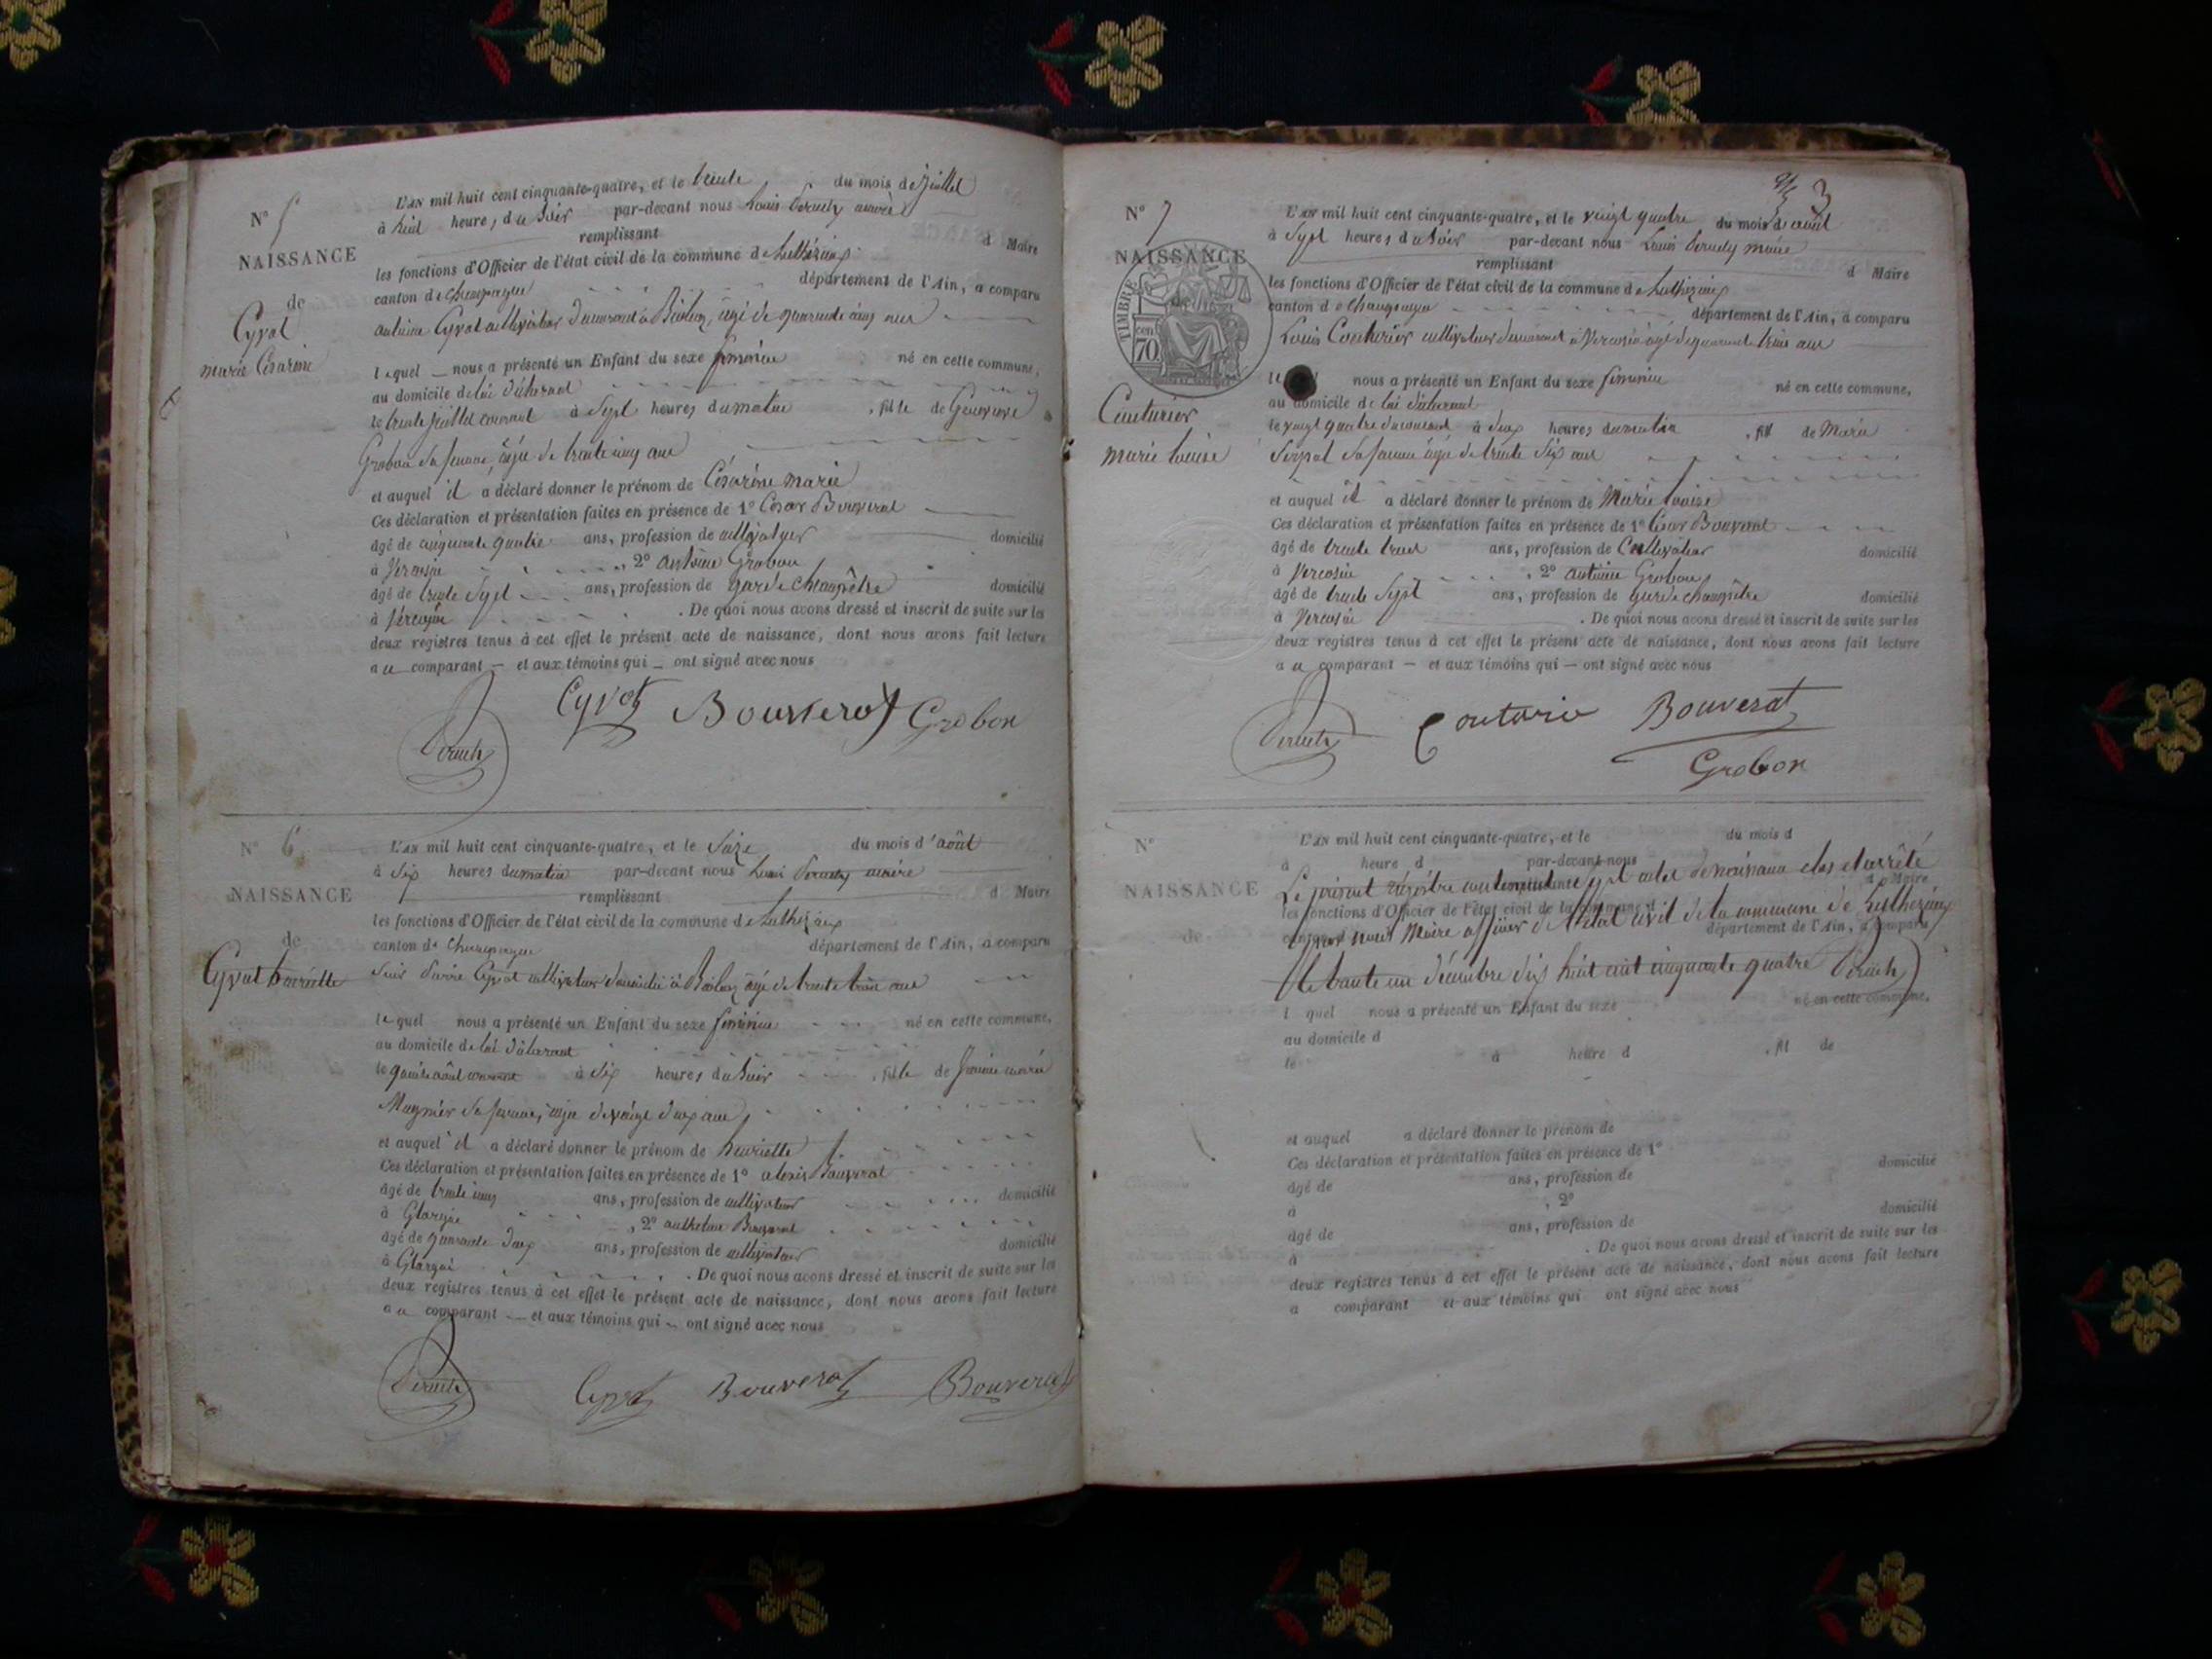 N° 5
NAISSANCE
de
Cyvot
marie Césarine
L'AN mil huit cent cinquante-quatre, et le trente du mois de Juillet
à huit heures du Soir par-devant nous Louis maire
remplissant d Maire
les fonctions d'Officier de l'état civil de la commune de
canton de Champagne département de l'Ain, a comparu
antoine Cyvot cultivateur demeurant à âgé de quarante cinq ans
lequel nous a présenté un Enfant du sexe féminin né en cette commune,
au domicile de lui déclarant
le trente juillet courant à Sept heures du matin , fille de
Grobon sa femme, âgée de trente cinq ans
et auquel il a déclaré donner le prénom de Césarine marie
Ces déclaration et présentation faites en présence de 1° César Bouverat
âgé de quatre ans, profession de cultivateur domicilié
à Vercosin , 2° antoine Grobon
âgé de trente Sept ans, profession de garde champêtre domicilié
à Vercosin . De quoi nous avons dressé et inscrit de suite sur les
deux registres tenus à cet effet le présent acte de naissance, dont nous avons fait lecture
au comparant et aux témoins qui ont signé avec nous
Cyvot Bouverat Grobon
N° 6
NAISSANCE
de
Cyvot henriette
L'AN mil huit cent cinquante-quatre, et le Seize du mois d'août
à Six heures du matin par-devant nous Louis maire
remplissant d Maire
les fonctions d'Officier de l'état civil de la commune de
canton de Champagne département de l'Ain, a comparu
Cyvot cultivateur domicilié à âgé de trente trois ans
lequel nous a présenté un Enfant du sexe féminin né en cette commune,
au domicile de lui déclarant
le quinze août courant à Six heures du Soir , fille de marie
sa femme, âgée de vingt deux ans
et auquel il a déclaré donner le prénom de henriette
Ces déclaration et présentation faites en présence de 1° alexis Bouverat
âgé de trente cinq ans, profession de cultivateur domicilié
à , 2° anthelme Bouverat
âgé de quarante deux ans, profession de cultivateur domicilié
à . De quoi nous avons dressé et inscrit de suite sur les
deux registres tenus à cet effet le présent acte de naissance, dont nous avons fait lecture
au comparant et aux témoins qui ont signé avec nous
Cyvot Bouverat Bouverat
3
N° 7
NAISSANCE
de
TIMBRE
70
Couturier
marie louise
L'AN mil huit cent cinquante-quatre, et le vingt quatre du mois d'août
à Sept heures du Soir par-devant nous Louis maire
remplissant d Maire
les fonctions d'Officier de l'état civil de la commune de
canton de Champagne département de l'Ain, a comparu
Louis Couturier cultivateur demeurant à Vercosin âgé de quarante trois ans
nous a présenté un Enfant du sexe féminin né en cette commune,
au domicile de lui déclarant
le vingt quatre du courant à deux heures du matin , fill de Marie
sa femme âgée de trente Six ans
et auquel il a déclaré donner le prénom de Marie louise
Ces déclaration et présentation faites en présence de 1° César Bouverat
âgé de trente ans, profession de Cultivateur domicilié
à Vercosin , 2° antoine Grobon
âgé de trente Sept ans, profession de garde champêtre domicilié
à Vercosin . De quoi nous avons dressé et inscrit de suite sur les
deux registres tenus à cet effet le présent acte de naissance, dont nous avons fait lecture
au comparant et aux témoins qui ont signé avec nous
Couturie Bouverat
Grobon
N°
NAISSANCE
de
L'AN mil huit cent cinquante-quatre, et le du mois d
à heure d par-devant nous
Le présent registre contenant Sept actes de naissance clos et arrêté
les fonctions d'Officier de l'état civil de la commune d
par nous Maire officier de l'état civil de la commune de
département de l'Ain, a comparu
le trente un décembre dix huit cent cinquante quatre
l quel nous a présenté un Enfant du sexe né en cette commune,
au domicile d
le à heure d , fil de
et auquel a déclaré donner le prénom de
Ces déclaration et présentation faites en présence de 1°
âgé de ans, profession de domicilié
à , 2°
âgé de ans, profession de domicilié
à . De quoi nous avons dressé et inscrit de suite sur les
deux registres tenus à cet effet le présent acte de naissance, dont nous avons fait lecture
a comparant et aux témoins qui ont signé avec nous